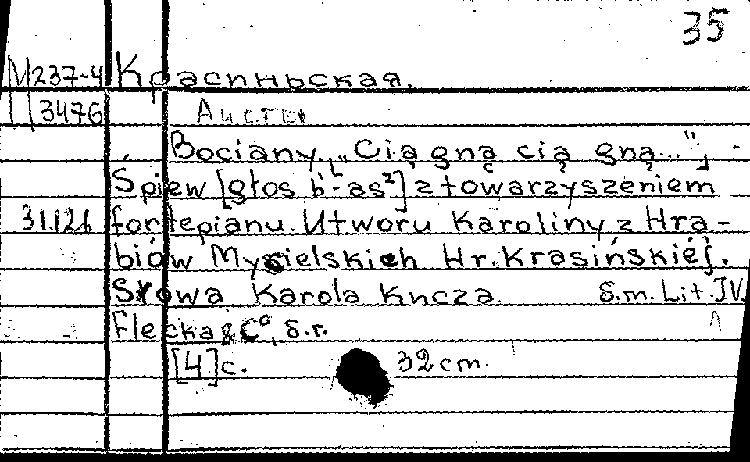 35
М237-4 Красиньская.
3476 Аисты
Bociany „Ciągną ciągną..."
Śpiew [głos b¹-as²] z towarzyszeniem
31.121 fortepianu. Utworu Karoliny z Hra-
biów Mycielskich Hr. Krasińskiéj.
Słowa Karola Kucza. S.m. Lit. JV.
Flecka & C°, s.r.
[4] c. 32 cm.